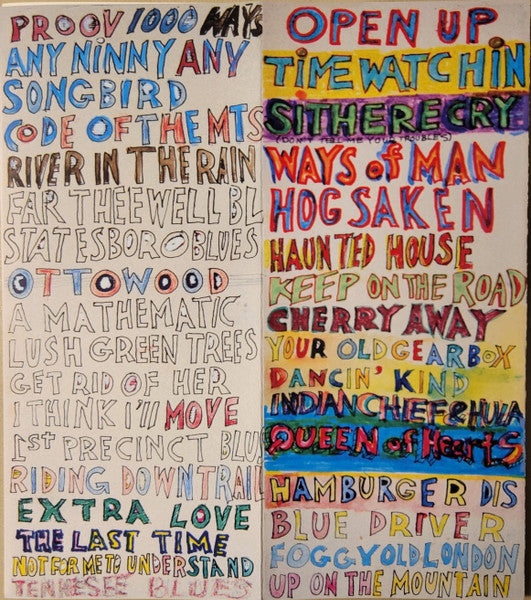 PROOV 1000 WAYS
ANY NINNY ANY
SONGBIRD
CODE OF THE MTS
RIVER IN THE RAIN
FAR THEE WELL BL
STATESBORO BLUES
OTTOWOOD
A MATHEMATIC
LUSH GREEN TREES
GET RID OF HER
I THINK I'll MOVE
1st PRECINCT BLU
RIDING DOWN TRAIL
EXTRA LOVE
THE LAST TIME
NOT FOR ME TO UNDERSTAND
TENNESEE BLUES
OPEN UP
TIME WATCHIN
SIT HERE CRY
(DON'T TELL ME YOUR TROUBLES)
WAYS of MAN
HOGSAKEN
HAUNTED HOUSE
KEEP ON THE ROAD
CHERRY AWAY
YOUR OLD GEARBOX
DANCIN' KIND
INDIAN CHIEF & HULA
QUEEN of HeartS
HAMBURGER DIS
BLUE DRIVER
FOGGY OLD LONDON
UP ON THE MOUNTAIN